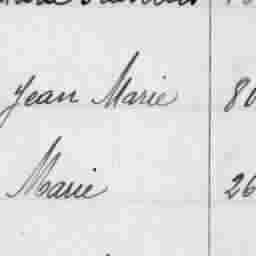 Jean Marie 80
Marie 26